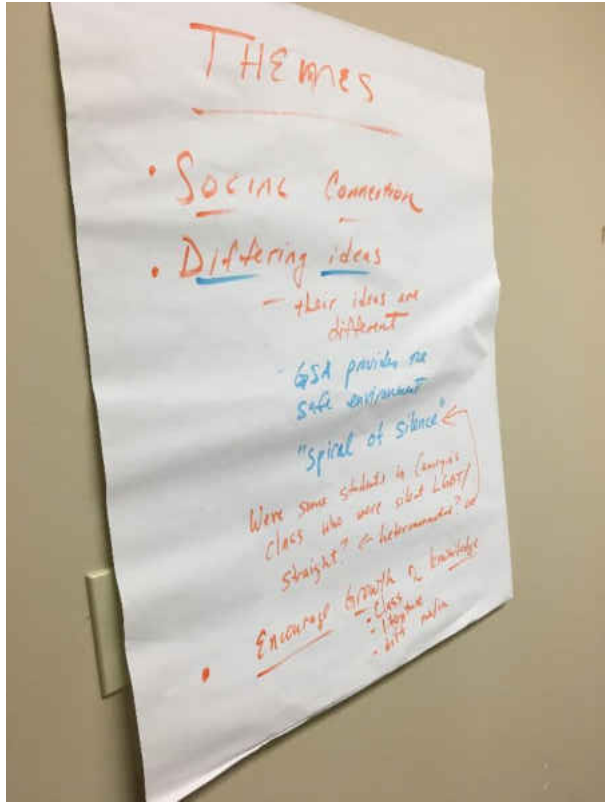 THEMES
• Social Connection
• Differing ideas
- their ideas are
different
- GSA provides the
safe environment
"spiral of silence"
Were some students in
class who were silent LGBT/
straight? heteronormative?
• Encourage Growth of knowledge
- Class
- literature
- media